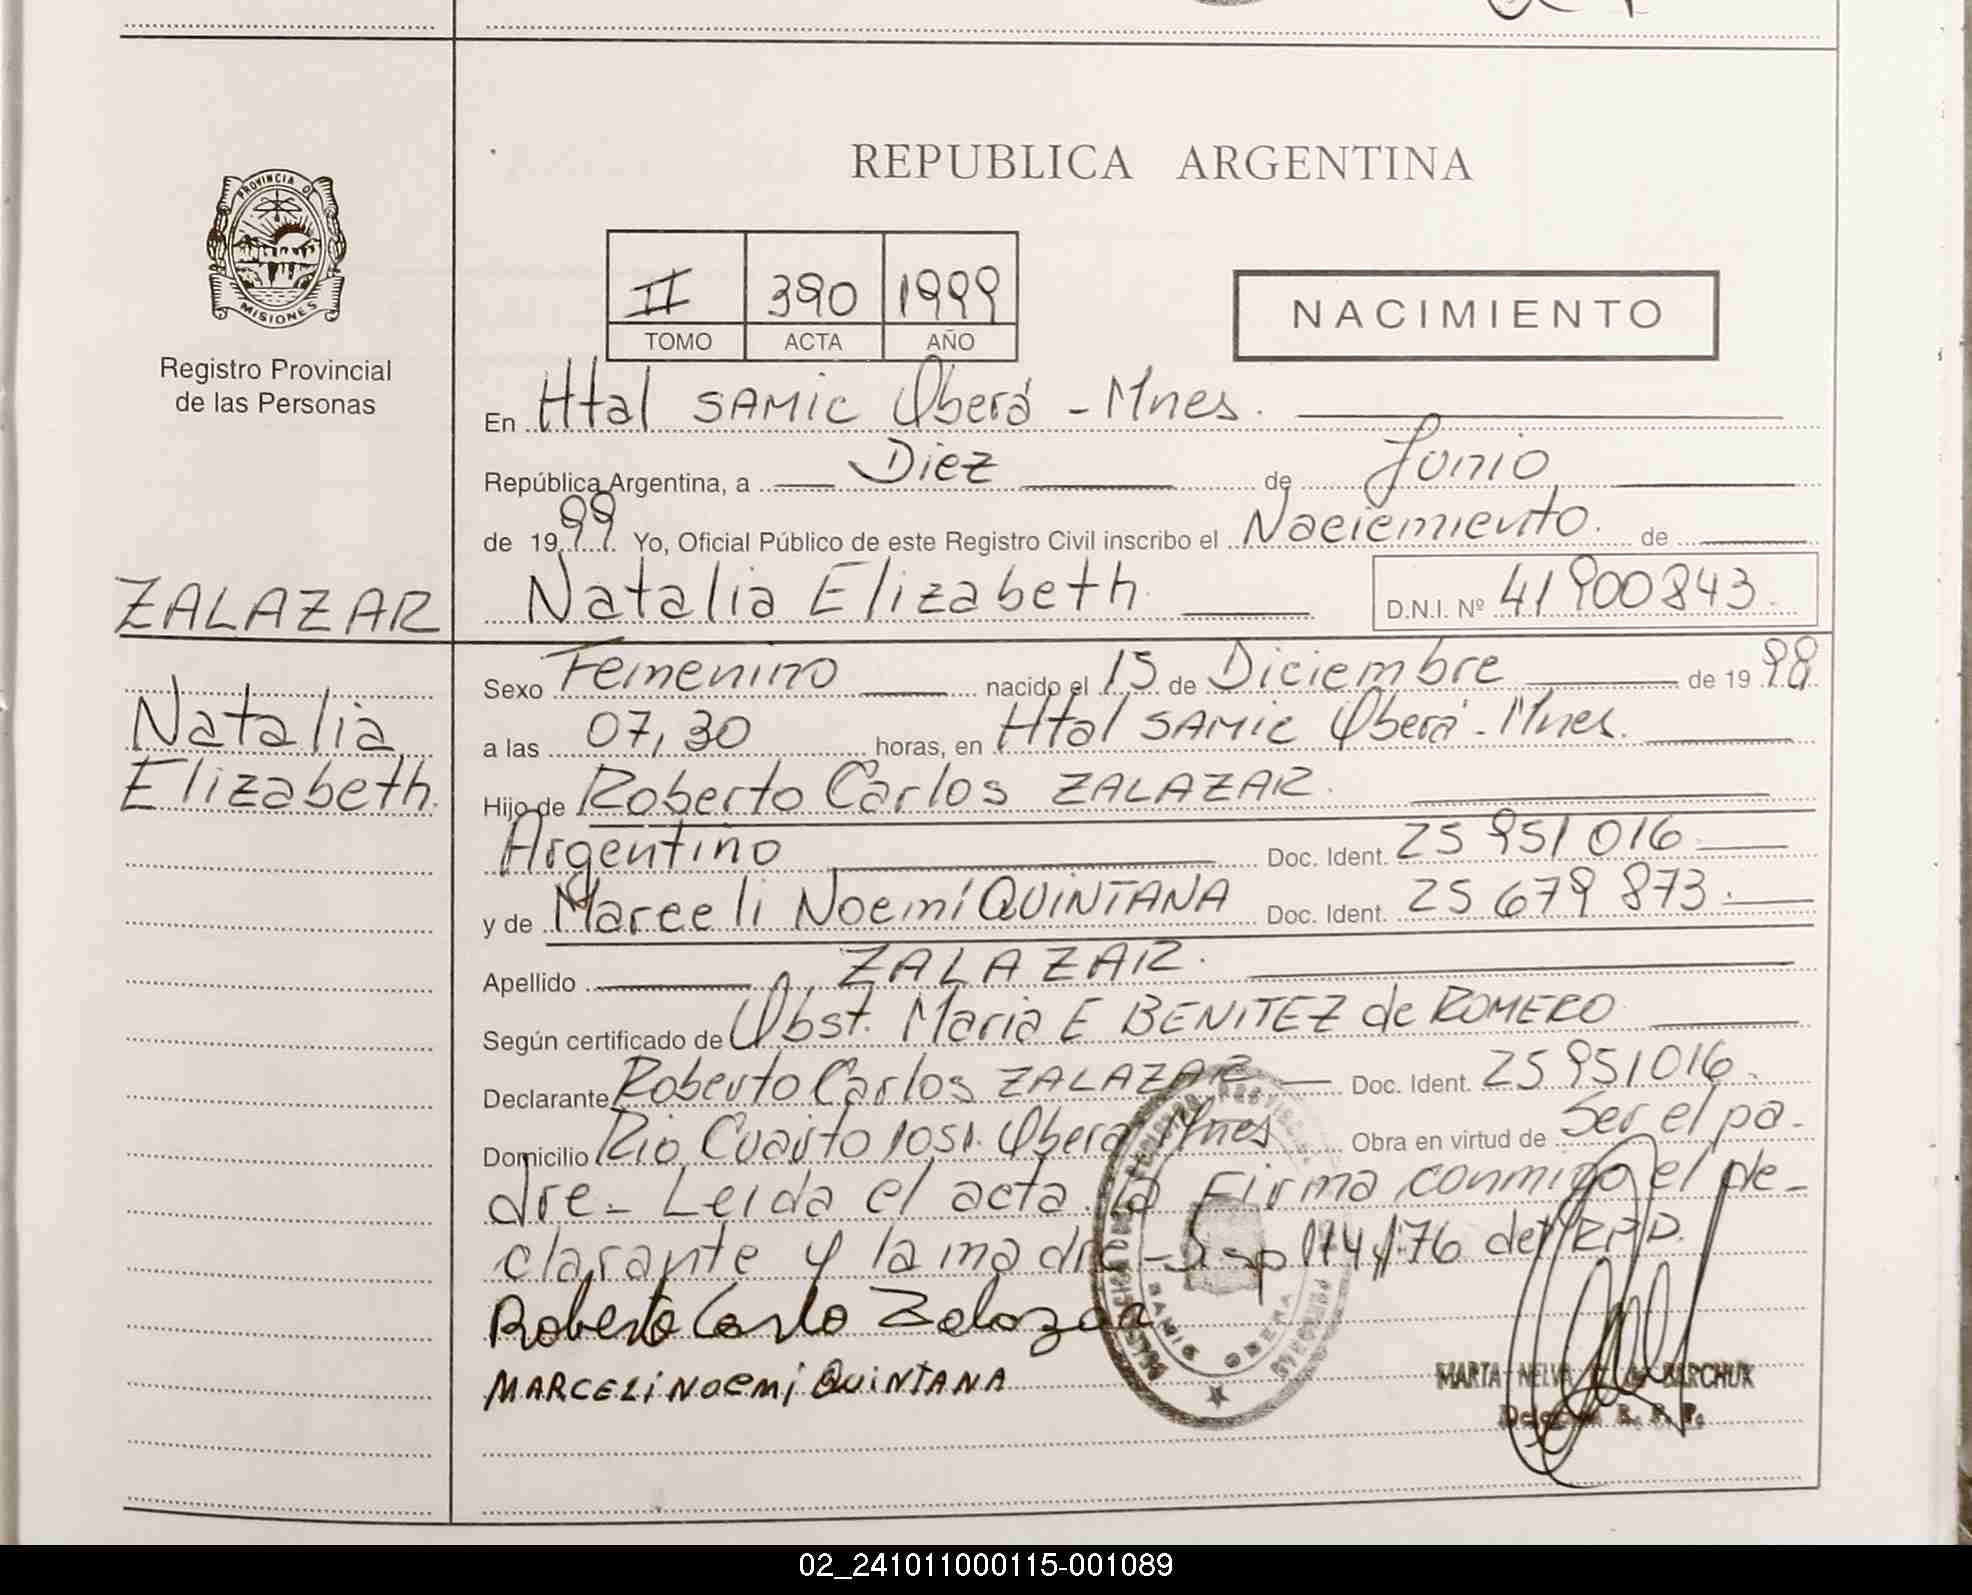 REPUBLICA ARGENTINA
PROVINCIA DE
MISIONES
Registro Provincial
de las Personas
II 390 1999
TOMO ACTA AÑO
NACIMIENTO
En Htal SAMIC Oberá - Mnes.
República Argentina, a Diez de Junio
de 1999. Yo, Oficial Público de este Registro Civil inscribo el Naciemiento. de
ZALAZAR
Natalia Elizabeth. D.N.I. Nº 41900843.
Natalia
Elizabeth.
Sexo Femenino nacido el 15 de Diciembre de 1998
a las 07,30 horas, en Htal SAMIC Oberá - Mnes.
Hijo de Roberto Carlos ZALAZAR.
Argentino Doc. Ident. 25 951 016
y de Marceli Noemí QUINTANA Doc. Ident. 25 679 873.
Apellido ZALAZAR.
Según certificado de Obst. Maria E BENITEZ de ROMERO
Declarante Roberto Carlos ZALAZAR Doc. Ident. 25951016.
Domicilio Rio Cuarto 1051. Obera Mnes Obra en virtud de Ser el pa-
dre - Leida el acta la Firma conmigo el de-
clarante y la madre - Disp 114/76 del R.P.P.
Roberto Carlo Zalazar
MARCELI NOEMI QUINTANA
OBERA
MARTA NELVA de BARCHUK
R. P. P.
02_241011000115-001089